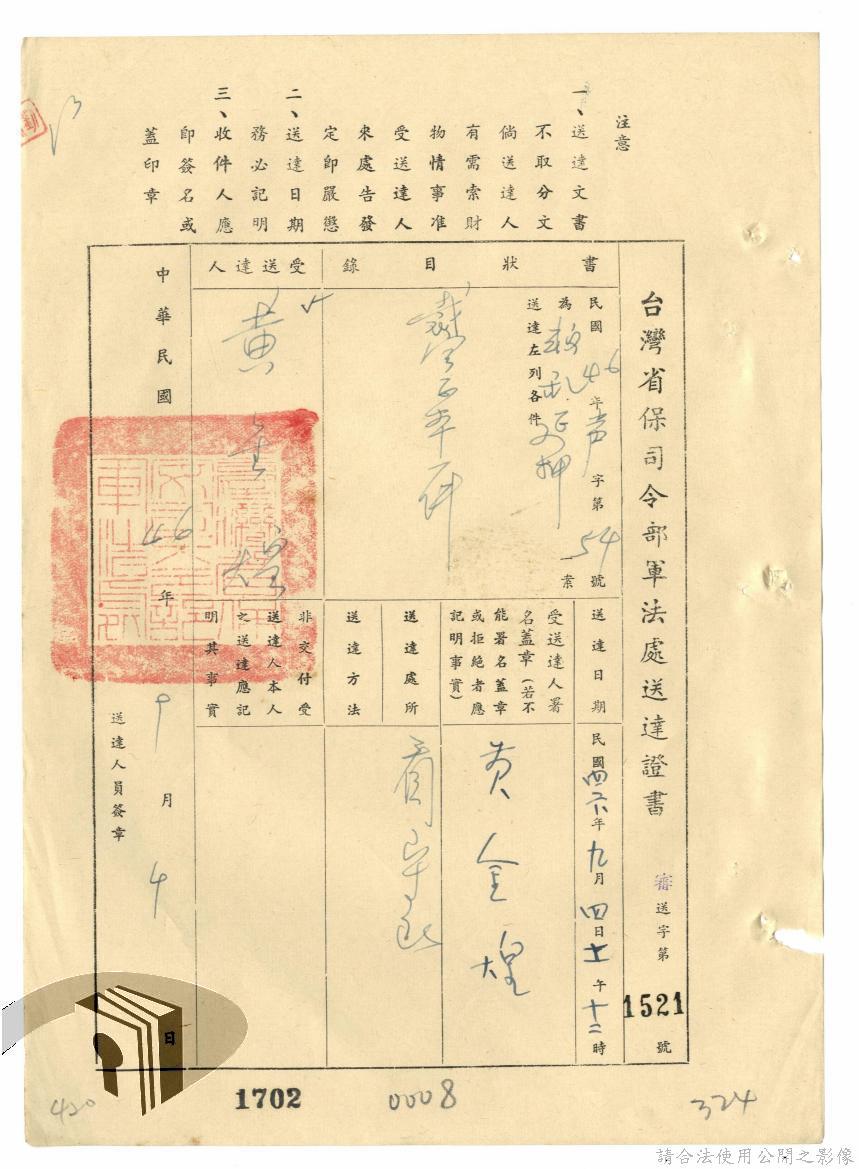 注意
一、送達文書
不取分文
倘送達人
有需索財
物情事准
受送達人
來處告發
定即嚴懲
二、送達日期
務必記明
三、收件人應
即簽名或
蓋印章
台灣省保司令部軍法處送達證書
審送字第1521號
書狀目錄
民國46年声字第54號
為
延押
案
送達左列各件
正本一件
受送達人
黃金煌
中華民國46年9月4日
送達日期
民國四六年九月四日上午十二時
受送達人署
名蓋章(若不
能署名蓋章
或拒絕者應
記明事實)
黃金煌
送達處所
看守所
送達方法
非交付受
送達人本人
之送達應記
明其事實
送達人員簽章
420
1702
0008
324
請合法使用公開之影像